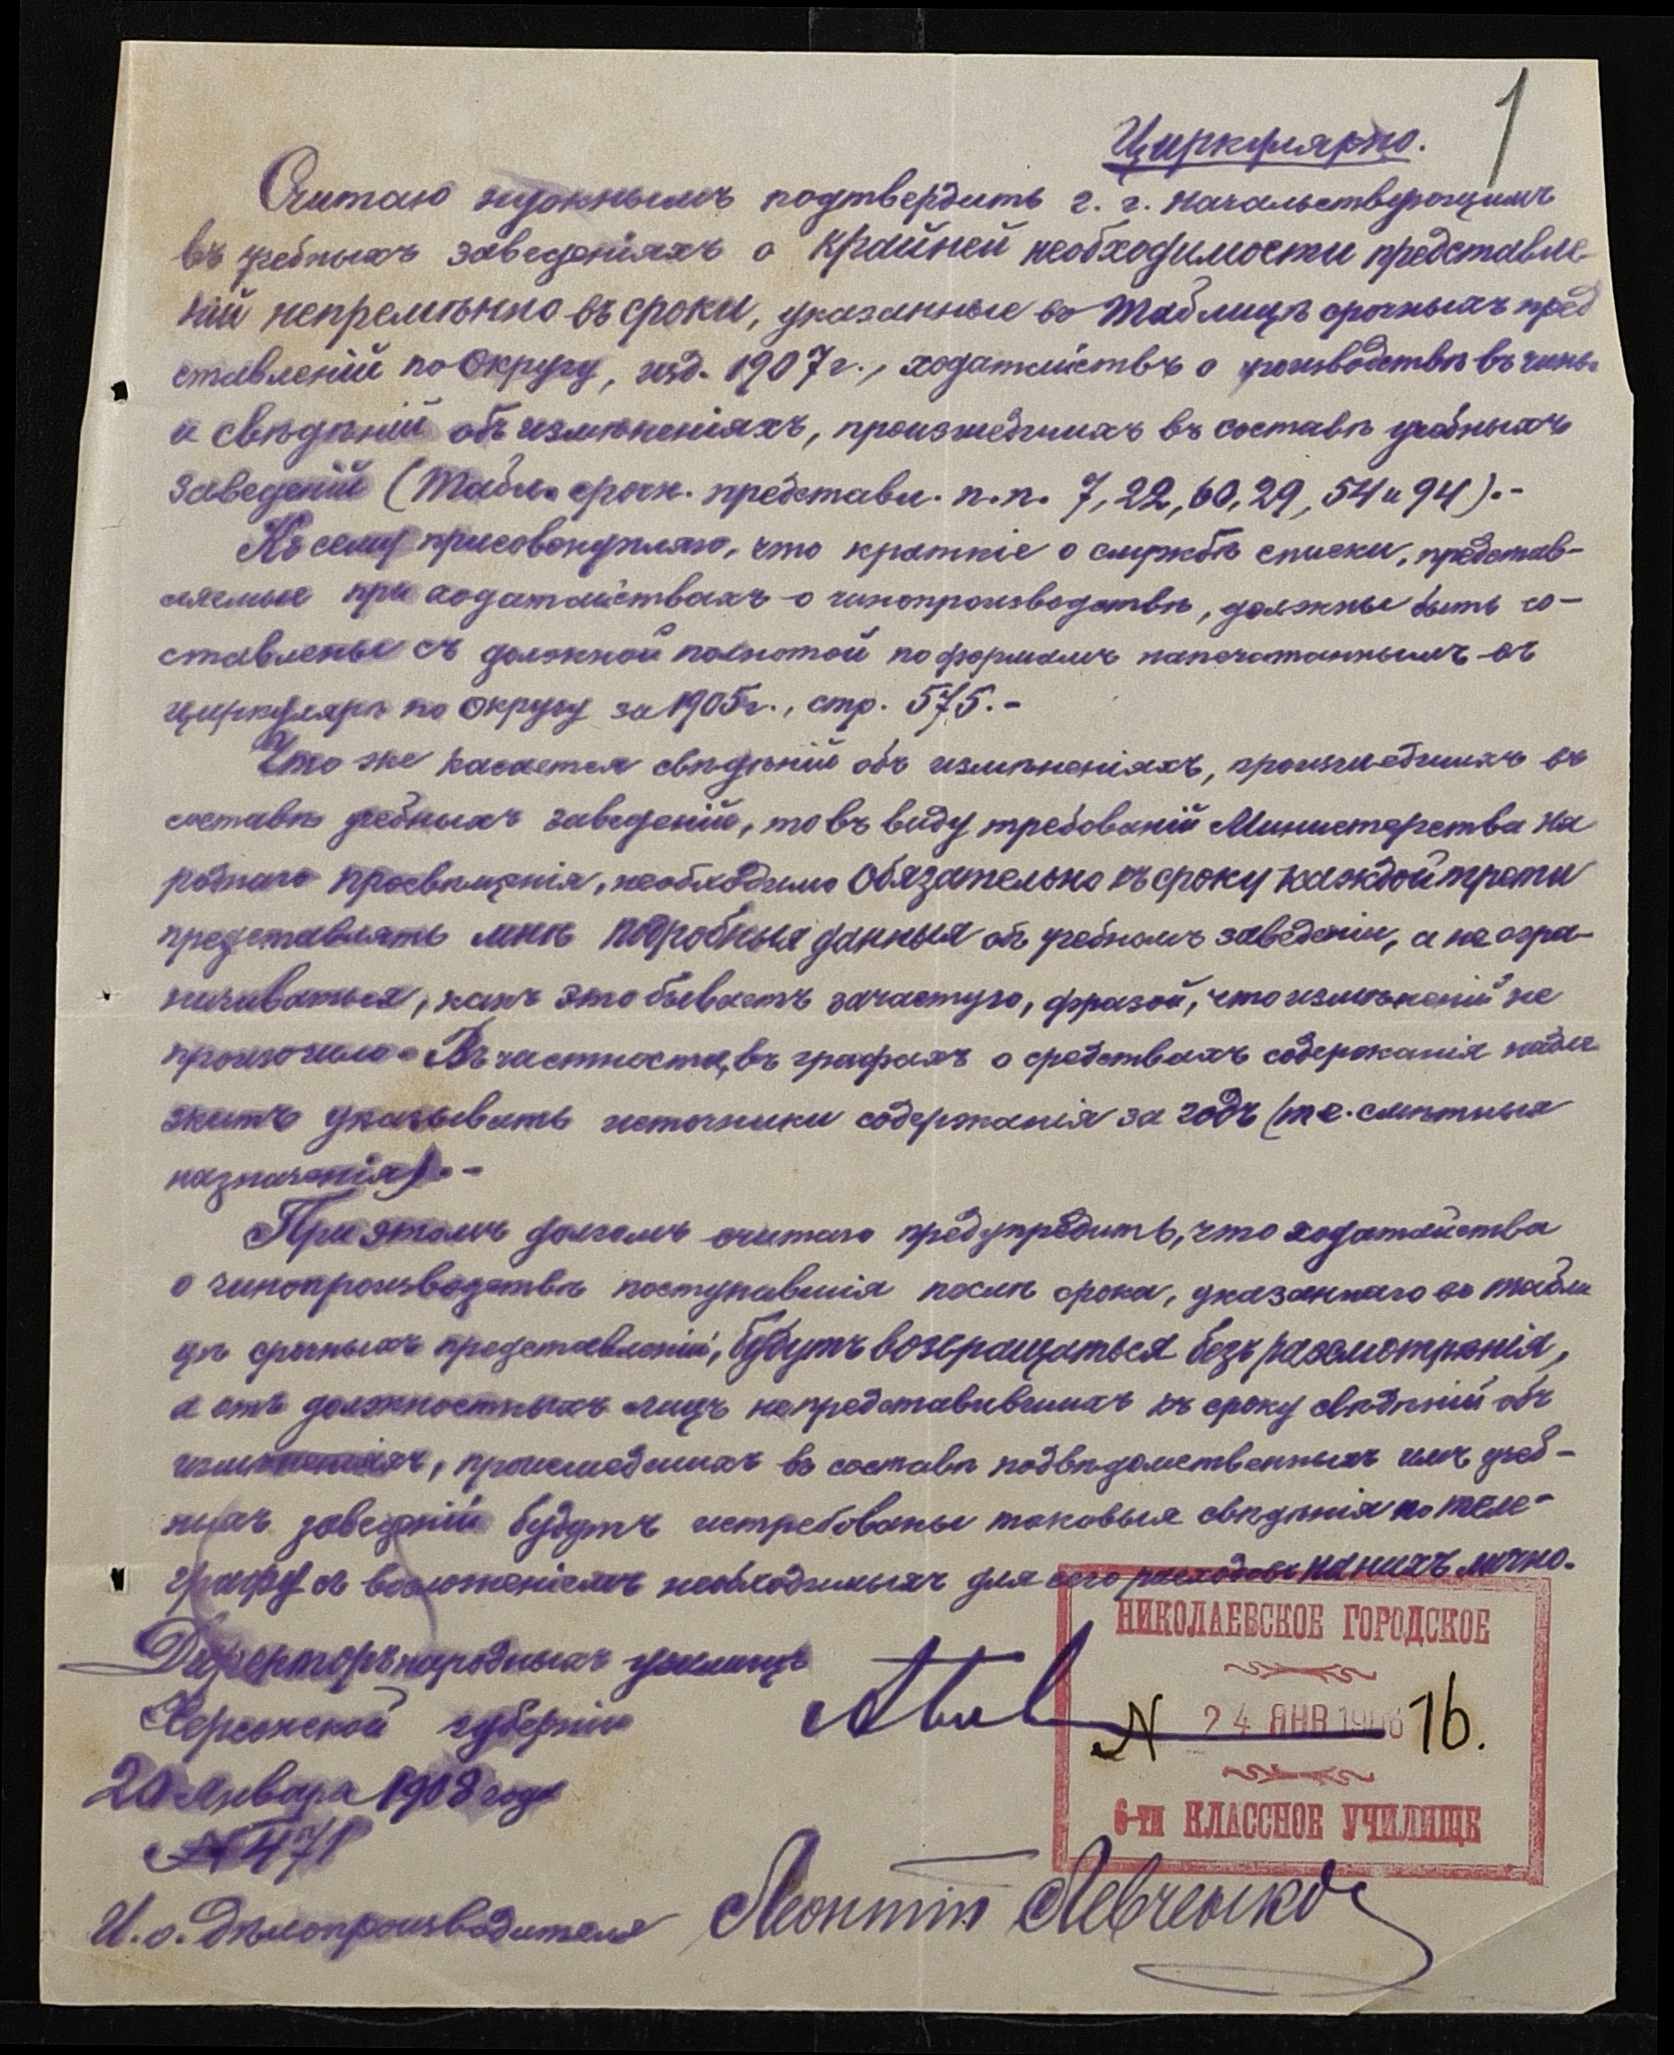 1
Циркулярно.
Считаю нужнымъ подтвердить г. г. начальствующимъ
въ учебныхъ заведеніяхъ о крайней необходимости представле-
ній непремѣнно въ сроки, указанные въ таблицѣ срочныхъ пред
ставленій по Округу, изд. 1907 г., ходатайствъ о производствѣ въ чины
и свѣдѣній объ измѣненіяхъ, происшедшихъ въ составѣ учебныхъ
заведеній (Табл. срочн. представл. п.п. 7, 22, 60, 29, 54 и 94).-
Къ сему присовокупляю, что краткіе о службѣ списки, представ-
ляемые при ходатайствахъ о чинопроизводствѣ, должны быть со-
ставлены съ должной полнотой по формамъ напечатаннымъ въ
циркулярѣ по Округу за 1905 г., стр. 575.-
Что же касается свѣдѣній объ измѣненіяхъ, происшедшихъ въ
составѣ учебныхъ заведеній, то въ виду требованій Министерства На
роднаго просвѣщенія, необходимо обязательно къ сроку каждой трети
представлять мнѣ подробныя данныя объ учебномъ заведеніи, а не огра-
ничиваться, какъ это бываетъ зачастую, фразой, что измѣненій не
произошло. Въ частности, въ графахъ о средствахъ содержанія надле
житъ указывать источники содержанія за годъ (т.е. смѣтныя
назначенія).-
При этомъ долгомъ считаю предупредить, что ходатайства
о чинопроизводствѣ поступавшія послѣ срока, указаннаго въ табли
цѣ срочныхъ представленій, будутъ возвращаться безъ разсмотрѣнія,
а отъ должностныхъ лицъ непредставившихъ къ сроку свѣдѣній объ
измѣненіяхъ, происшедшихъ въ составѣ подвѣдомственныхъ имъ учеб-
ныхъ заведеній будутъ истребованы таковыя свѣдѣнія по теле-
графу съ возложеніемъ необходимыхъ для сего расходовъ на нихъ лично.
Директоръ народныхъ училищъ
Херсонской губерніи
20 Января 1908 года
№ 471
И. о. дѣлопроизводителя Леонтій Левченко
НИКОЛАЕВСКОЕ ГОРОДСКОЕ
N 24 ЯНВ 1908 76.
6-ти КЛАССНОЕ УЧИЛИЩЕ